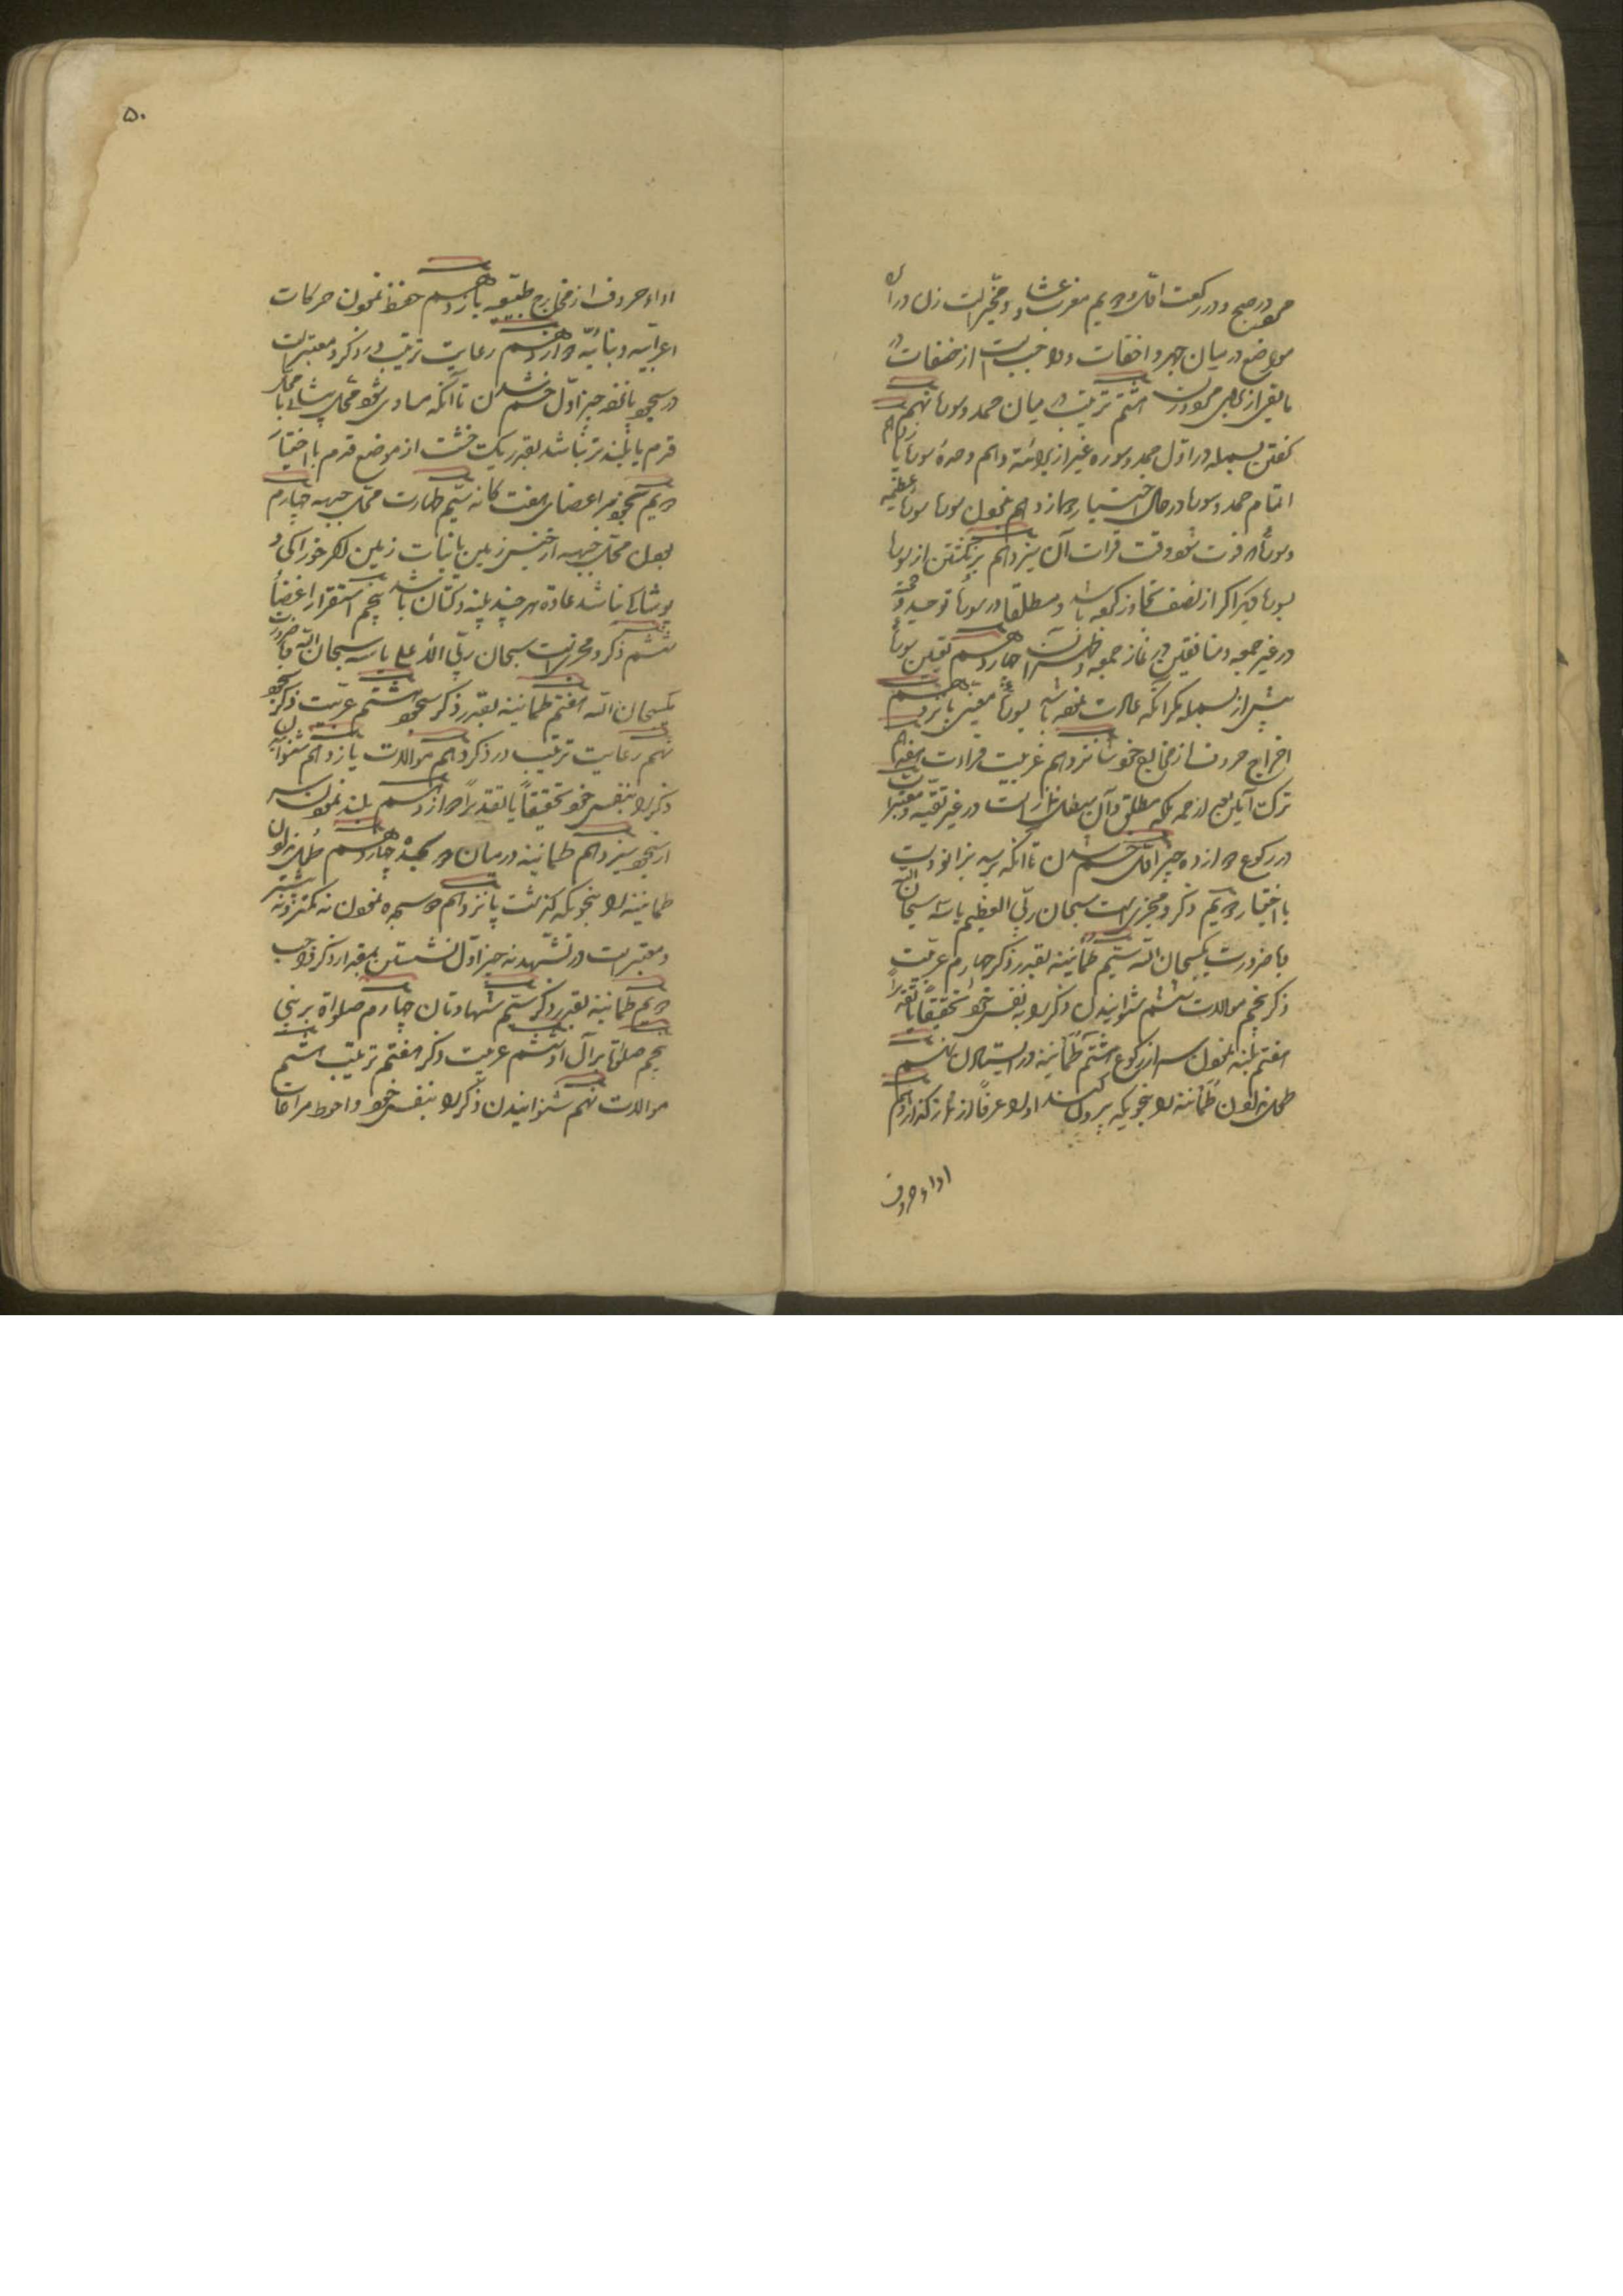 مرد در صبح و در رکعت اول و دویم مغرب و عشا و مخیر است زن در آن
مواضع در میان جهر و اخفات و واجب است اخفات در
مابقی از برای مرد و زن هشتم ترتیب در میان حمد و سوره نهم
گفتن بسمله در اول حمد و سوره غیر از براءة دهم وحدة سوره یازدهم
اتمام حمد و سوره در حال اختیار دوازدهم نخواندن سوره عظیمه
و سوره که فوت شود وقت قرائت آن سیزدهم برنگشتن از سوره
بسوره دیگر اگر از نصف تجاوز کرده باشد و مطلقا در سوره توحید و جحد
در غیر جمعه و منافقین در نماز جمعه و ظهر آن چهاردهم تعیین سوره
پیش از بسمله مگر آنکه عادت نموده باشد بسوره معینی پانزدهم
اخراج حروف از مخارج خود شانزدهم عربیت قراءت هفدهم
ترک آمین بعد از حمد بلکه مطلق و آن مبطل نماز است در غیر تقیه و معتبر است
در رکوع دوازده چیز اول خم شدن تا آنکه برسد بزانو دست
با اختیار دویم ذکر و مجزی است سبحان ربی العظیم یا سه سبحان الله
با ضرورت یکسبحان الله سیم طمأنینه بقدر ذکر چهارم عربیت
ذکر پنجم موالات ششم شنوانیدن ذکر را به نفس خود تحقیقاً یا تقدیراً
هفتم بلند نمودن سر از رکوع هشتم طمأنینه در ایستادن نهم
طول ندادن طمأنینه را بنحویکه بیرون کند او را عرفاً از نمازگذار دهم
اداء حروف
۵۰
اداء حروف از مخارج طبیعیه یازدهم حفظ نمودن حرکات
اعرابیه و بنائیه دوازدهم رعایت ترتیب در ذکر و معتبر است
در سجود پانزده چیز اول خم شدن تا آنکه مساوی شود محل پیشانی با محل
قدم یا بلندتر نباشد بقدر یک خشت از موضع قدم با اختیار
دویم سجود بر اعضای هفت گانه سیم طهارت محل جبهه چهارم
بودن محل جبهه از جنس زمین یا نبات زمین اگر خوراکی و
پوشاکی نباشد عادة هر چند پنبه و کتان باشد پنجم استقرار اعضا
ششم ذکر و مجزی است سبحان ربی الاعلی یا سه سبحان الله با ضرورت
یکسبحان الله هفتم طمأنینه بقدر ذکر سجود هشتم عربیت ذکر سجود
نهم رعایت ترتیب در ذکر دهم موالات یازدهم شنوانیدن
ذکر را بنفس خود تحقیقاً یا تقدیراً دوازدهم بلند نمودن سر
از سجود سیزدهم طمأنینه در میان دو سجده چهاردهم طول ندادن
طمأنینه را بنحویکه گذشت پانزدهم دو سجده نمودن نه کمتر و نه بیشتر
و معتبر است در تشهد نه چیز اول نشستن بمقدار ذکر واجب
دویم طمأنینه بقدر ذکر سیم شهادتان چهارم صلواة بر نبی
پنجم صلوة بر آل او ششم عربیت ذکر هفتم ترتیب هشتم
موالات نهم شنوانیدن ذکر را بنفس خود و احوط مراعات